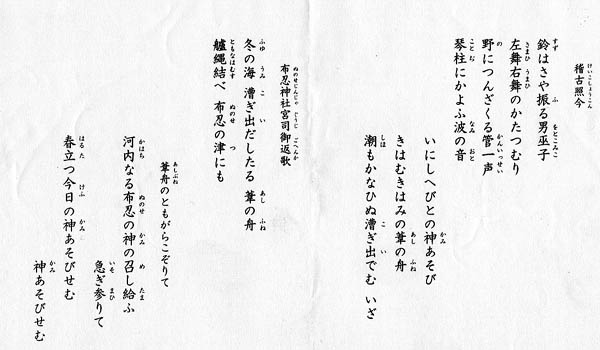 稽古照今
鈴はさや振る男巫子
左舞右舞のかたつむり
野につんざくる管一声
琴柱にかよふ波の音
いにしへびとの神あそび
きはむきはみの葦の舟
潮もかなひぬ漕ぎ出でむ いざ
布忍神社宮司御返歌
冬の海 漕ぎ出だしたる 葦の舟
艫縄結べ 布忍の津にも
葦舟のともがらこぞりて
河内なる布忍の神の召し給ふ
急ぎ参りて
春立つ今日の神あそびせむ
神あそびせむ